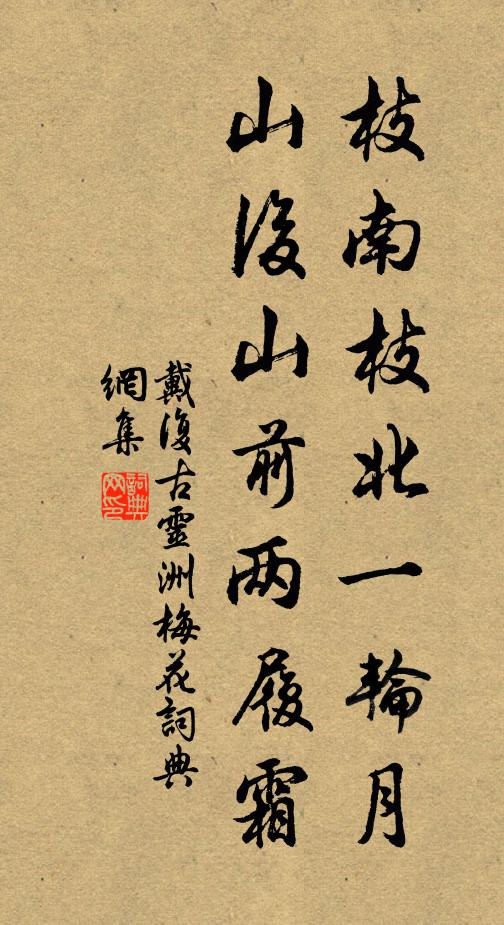 枝南枝北一輪月
山後山前两履霜
戴復古靈洲梅花詞典
網集
詞典網印